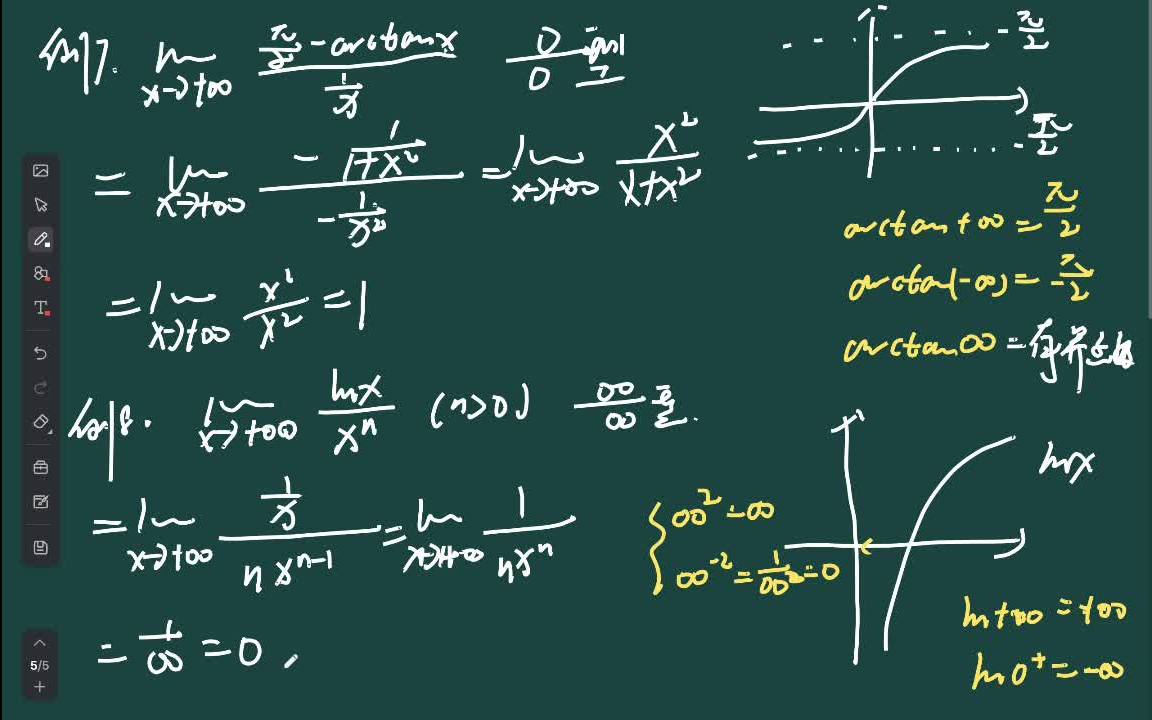 例7. lim x→+∞ (π/2 - arctanx)/(1/x) 0/0 型
= lim x→+∞ (-1/(1+x²))/(-1/x²) = lim x→+∞ x²/(1+x²)
= lim x→+∞ x²/x² = 1
例8. lim x→+∞ lnx/xⁿ (n>0) ∞/∞ 型.
= lim x→+∞ (1/x)/(n xⁿ⁻¹) = lim x→+∞ 1/(nxⁿ)
= 1/∞ = 0
π/2
-π/2
arctan+∞ = π/2
arctan(-∞) = -π/2
arctan∞ =
lnx
∞² = ∞
∞⁻² = 1/∞² = 0
ln+∞ = +∞
ln0⁺ = -∞
T
5/5